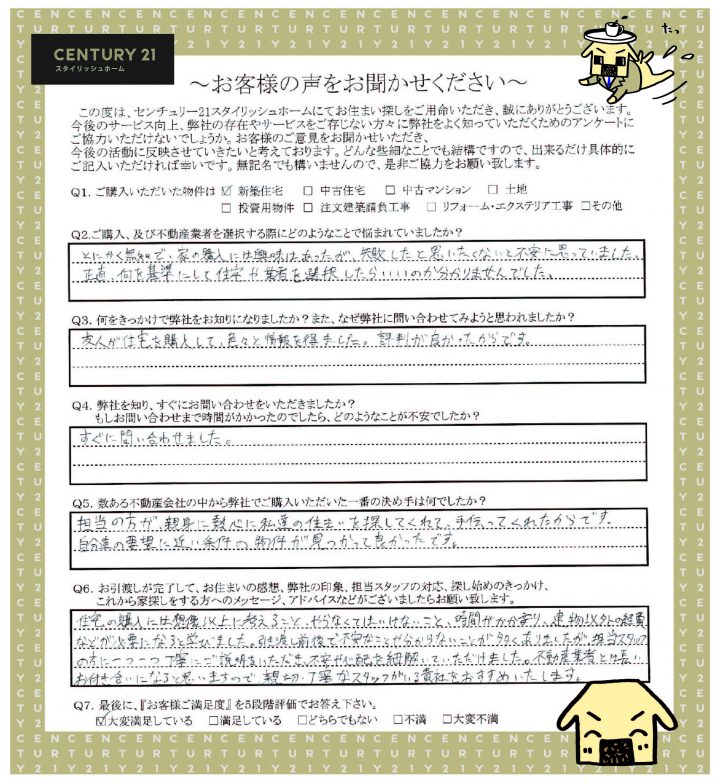 CENTURY 21
スタイリッシュホーム
たっ
～お客様の声をお聞かせください～
この度は、センチュリー21スタイリッシュホームにてお住まい探しをご用命いただき、誠にありがとうございます。
今後のサービス向上、弊社の存在やサービスをご存じない方々に弊社をよく知っていただくためのアンケートに
ご協力いただけないでしょうか。お客様のご意見をお聞かせいただき、
今後の活動に反映させていきたいと考えております。どんな些細なことでも結構ですので、出来るだけ具体的に
ご記入いただければ幸いです。無記名でも構いませんので、是非ご協力をお願い致します。
Q1. ご購入いただいた物件は ☑ 新築住宅 □ 中古住宅 □ 中古マンション □ 土地
□ 投資用物件 □ 注文建築請負工事 □ リフォーム・エクステリア工事 □その他
Q2.ご購入、及び不動産業者を選択する際にどのようなことで悩まれていましたか？
とにかく無知で、家の購入には興味はあったが、失敗したと思いたくないと不安に思っていました。
正直、何を基準にして住宅や業者を選択したらいいのか分かりませんでした。
Q3. 何をきっかけで弊社をお知りになりましたか？また、なぜ弊社に問い合わせてみようと思われましたか？
友人が住宅を購入して、色々と情報を得ました。評判が良かったからです。
Q4. 弊社を知り、すぐにお問い合わせをいただきましたか？
もしお問い合わせまで時間がかかったのでしたら、どのようなことが不安でしたか？
すぐに問い合わせました。
Q5. 数ある不動産会社の中から弊社でご購入いただいた一番の決め手は何でしたか？
担当の方が、親身に熱心に私達の住まいを探してくれて、手伝ってくれたからです。
自分達の要望に近い条件の物件が見つかって良かったです。
Q6. お引渡しが完了して、お住まいの感想、弊社の印象、担当スタッフの対応、探し始めのきっかけ、
これから家探しをする方へのメッセージ、アドバイスなどがございましたらお願い致します。
住宅の購入には想像以上に考えること、やらなくてはいけないこと、時間がかかったり、建物以外の経費
などが必要になると学びました。引渡し前後で不安なことや分からないことが多くありましたが、担当スタッフ
の方に一つ一つ丁寧にご説明をいただき、不安や心配を紐解いていただけました。不動産業者とは長い
お付き合いになると思いますので、親切、丁寧なスタッフがいる貴社をおすすめいたします。
Q7. 最後に、『お客様ご満足度』を5段階評価でお答え下さい。
☑大変満足している □満足している □どちらでもない □不満 □大変不満